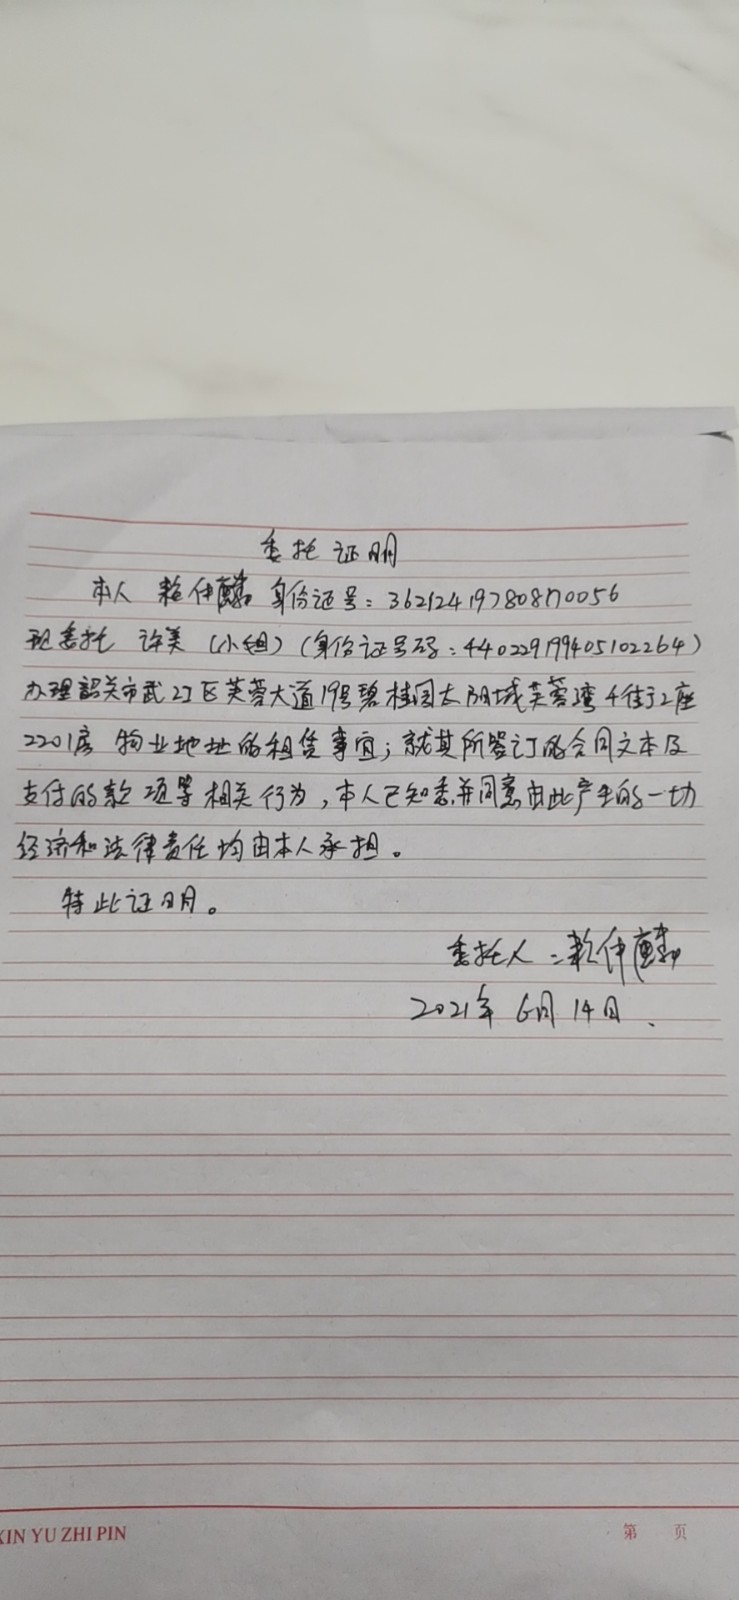 委托证明
本人 赖仲麟 身份证号：362124197808170056
现委托 许美（小组）（身份证号码：440229199405102264）
办理韶关市武江区芙蓉大道19号碧桂园太阳城芙蓉湾4街2座
2201房 物业地址的租赁事宜；就其所签订的合同文本及
支付的款项等相关行为，本人已知悉并同意由此产生的一切
经济和法律责任均由本人承担。
特此证明。
委托人：赖仲麟
2021年6月14日.
XIN YU ZHI PIN
第 页